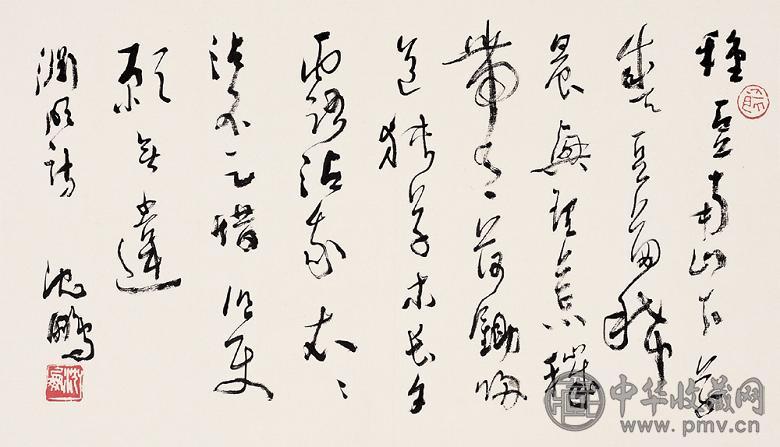 種豆南山下草
盛豆苗稀
晨興理荒穢
帶月荷鋤歸
道狹草木長夕
露沾我衣々
沾不足惜但使
願無違
淵明詩 沈鵬
中华收藏网
www.pmv.cn